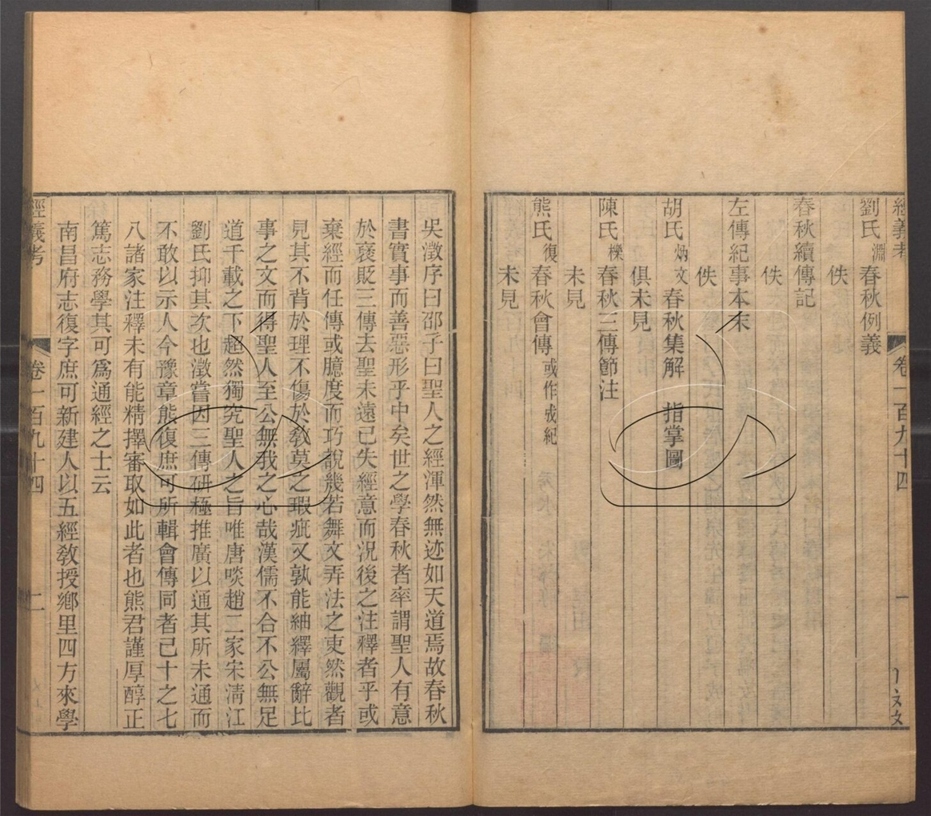 經義考 卷一百九十四 一
劉氏淵春秋例義
佚
春秋續傳記
佚
左傳紀事本末
佚
胡氏炳文春秋集解 指掌圖
俱未見
陳氏櫟春秋三傳節注
未見
熊氏復春秋會傳或作成紀
未見
吳澂序曰邵子曰聖人之經渾然無迹如天道焉故春秋
書實事而善惡形乎中矣世之學春秋者率謂聖人有意
於襃貶三傳去聖未遠已失經意而況後之注釋者乎或
棄經而任傳或臆度而巧說幾若舞文弄法之吏然觀者
見其不背於理不傷於敎莫之瑕疵又孰能紬繹屬辭比
事之文而得聖人至公無我之心哉漢儒不合不公無足
道千載之下超然獨究聖人之旨唯唐啖趙二家宋淸江
劉氏抑其次也澂嘗因三傳硏極推廣以通其所未通而
不敢以示人今豫章熊復庶可所輯會傳同者已十之七
八諸家注釋未有能精擇審取如此者也熊君謹厚醇正
篤志務學其可爲通經之士云
南昌府志復字庶可新建人以五經敎授鄕里四方來學
經義考 卷一百九十四 二